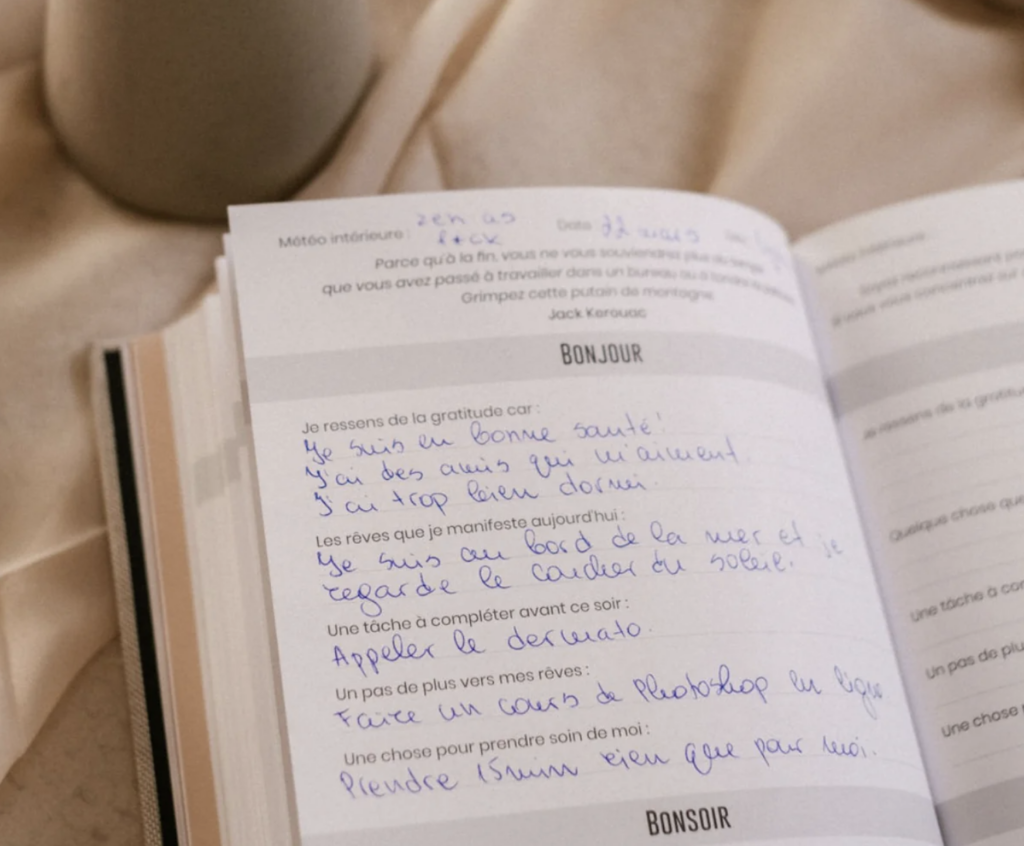 Météo intérieure : zen as
f*ck
Date 22 mars
Parce qu'à la fin, vous ne vous souviendrez plus du temps
que vous avez passé à travailler dans un bureau ou à
Grimpez cette putain de montagne
Jack Kerouac
BONJOUR
Je ressens de la gratitude car :
Je suis en bonne santé !
J'ai des amis qui m'aiment.
J'ai trop bien dormi.
Les rêves que je manifeste aujourd'hui :
Je suis au bord de la mer et je
regarde le coucher du soleil.
Une tâche à compléter avant ce soir :
Appeler le dermato.
Un pas de plus vers mes rêves :
Faire un cours de Photoshop en ligne
Une chose pour prendre soin de moi :
Prendre 15min rien que pour moi.
BONSOIR
Je ressens de la gratitu
Quelque chose que
Une tâche à co
Un pas de plu
Une chose